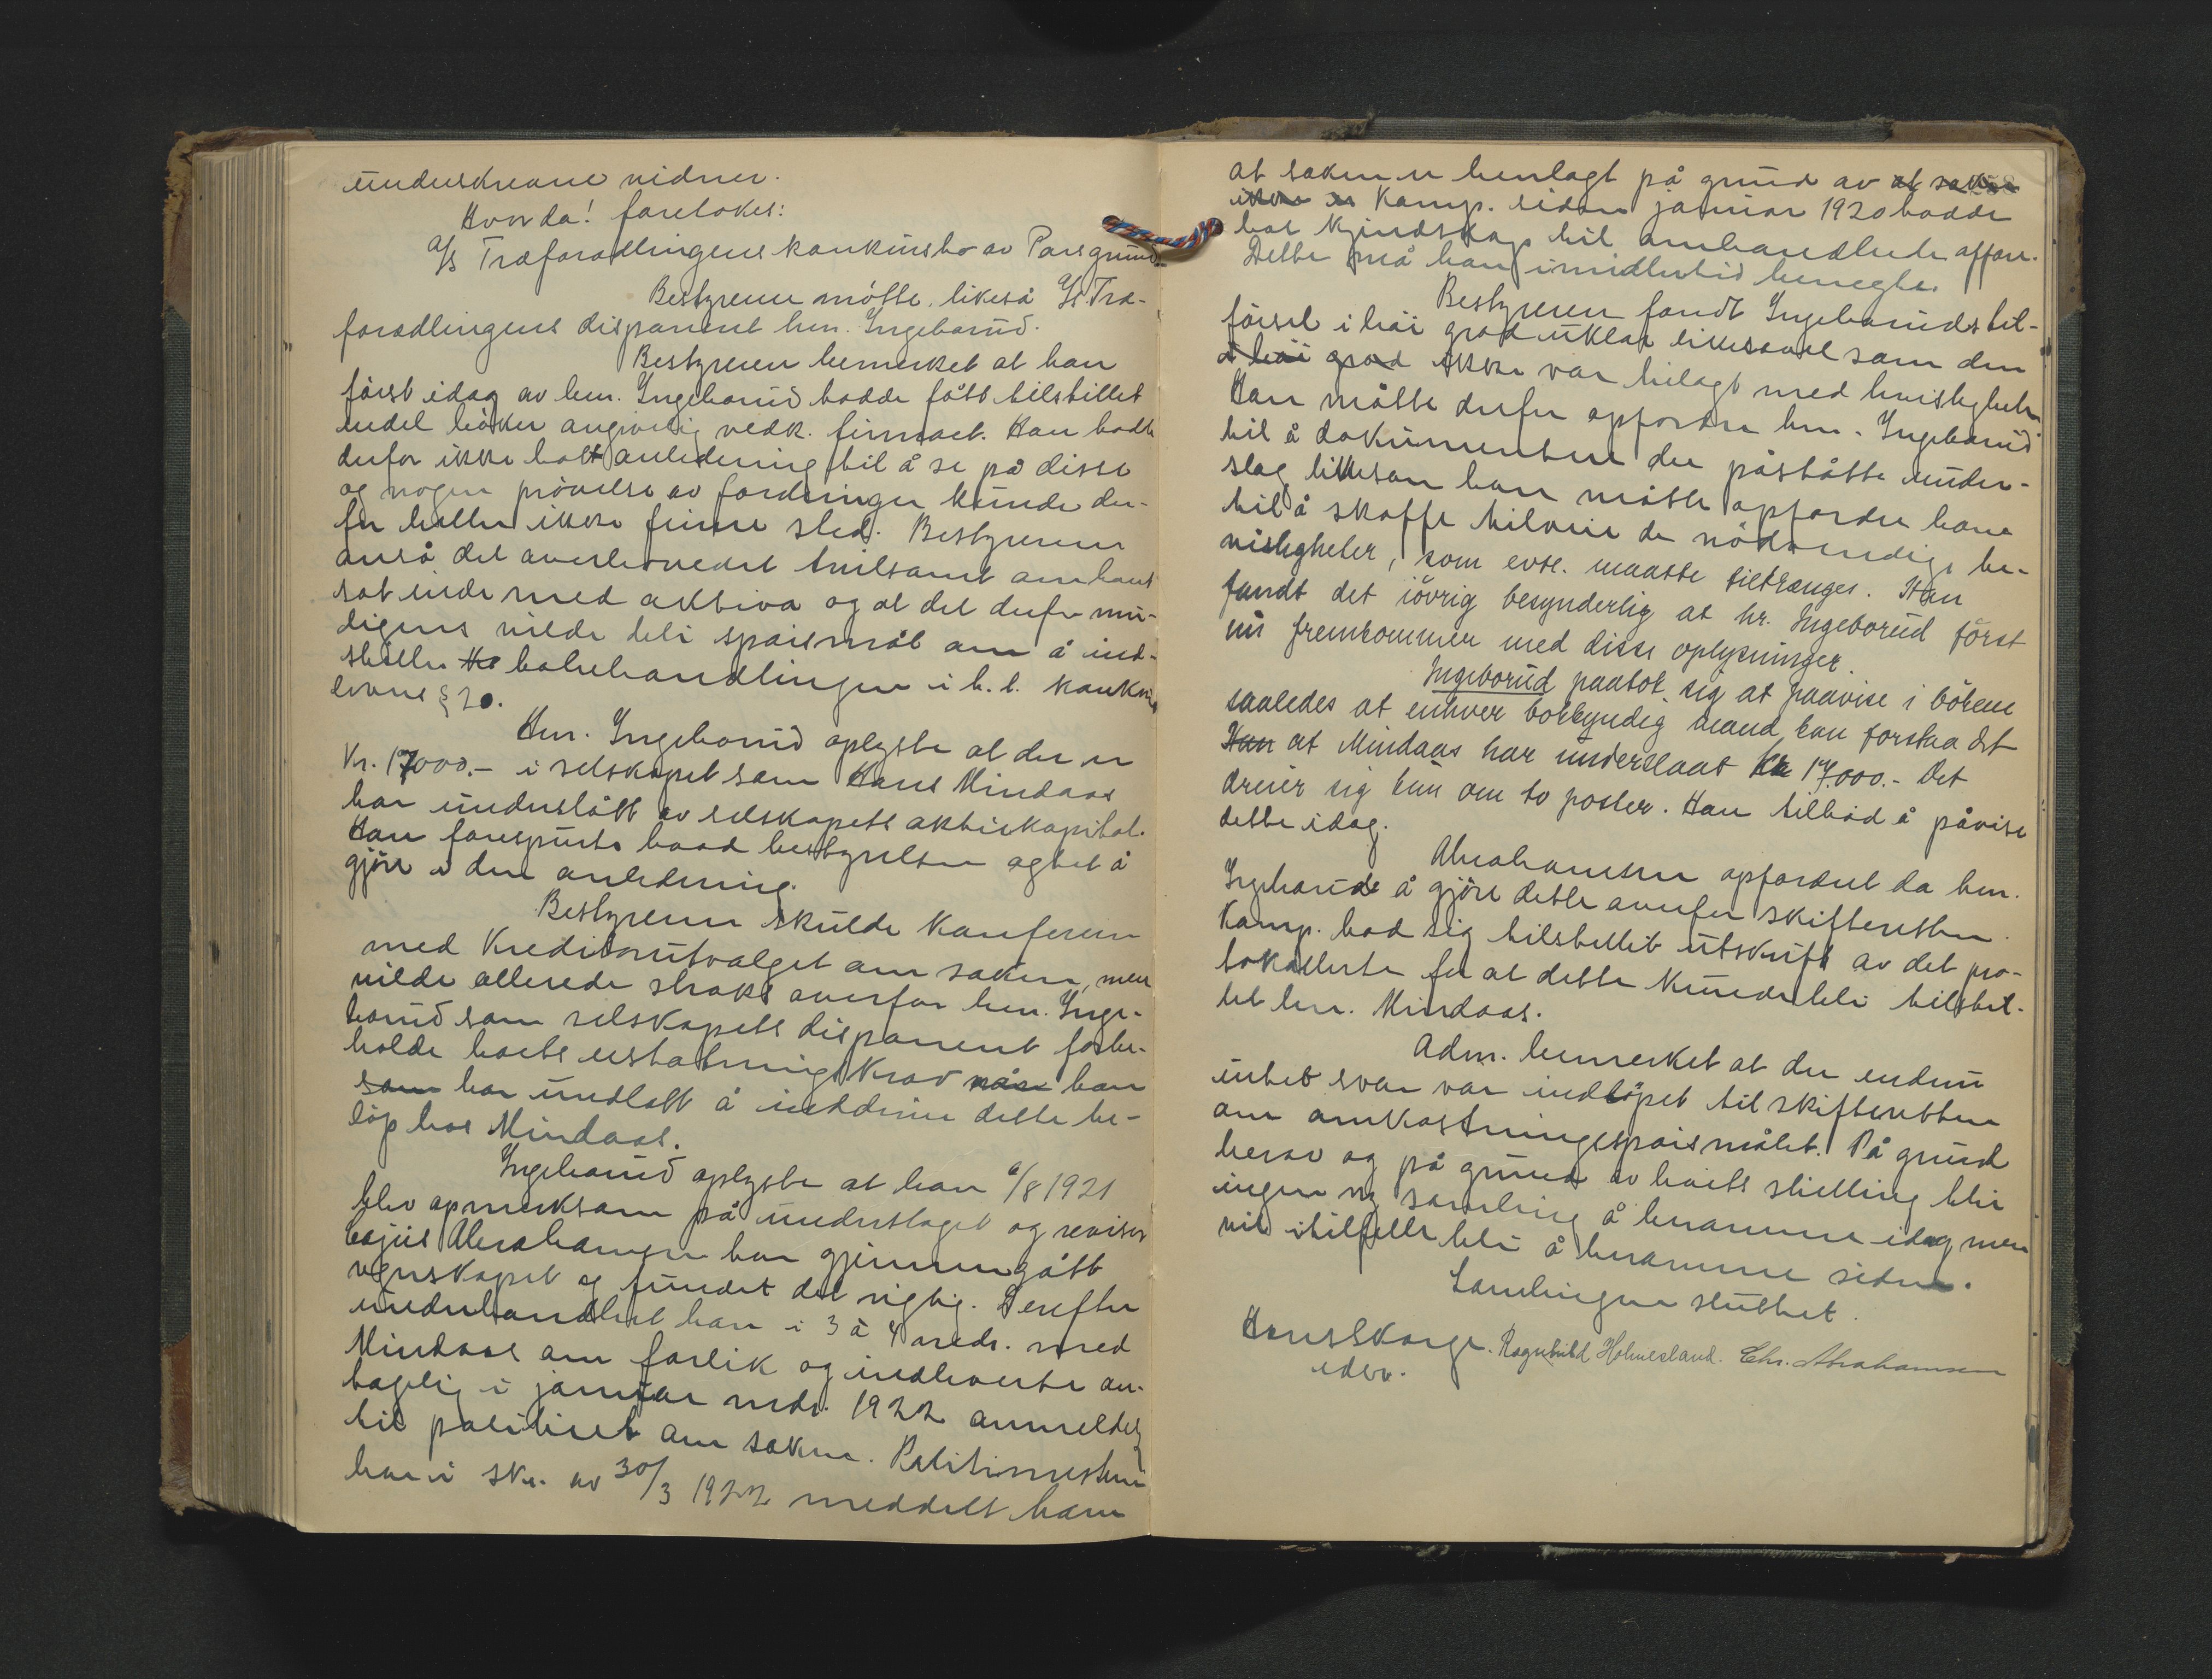 underskrevne vidner.
Hvorda! foretokes:
A/S Træforædlingens konkursbo av Porsgrund.
Bestyreren møtte, likeså A/S Træ-
forædlingens disponent herr Ingeborud.
Bestyreren bemerket at han
först idag av herr Ingeborud hadde fått tilstillet
endel böker angivelig vedk. firmaet. Han hadde
derfor ikke hatt anledning til å se på disse
og nogen prövelse av fordringer kunde der-
for heller ikke finne sted. Bestyreren
anså det overhovedet tvilsomt om boet
sat inde med aktiva og at det derfor mu-
ligens vilde bli spörsmål om å ind-
stille bobehandlingen i h.t. konkurs
lovens § 20.
Herr Ingeborud oplyste at der er
Kr. 17000.- i selskapet som Hans Mindaas
har underslått av selskapets aktiekapital.
Han forespurte hvad bestyrelsen agtet å
gjöre i den anledning.
Bestyreren skulde konferere
med Kreditorutvalget om saken, men
vilde allerede straks overfor herr Inge-
borud som selskapets disponent forbe-
holde boets erstatningskrav når han
som har undlatt å inddrive dette be-
löp hos Mindaas.
Ingeborud oplyste at han 6/8 1921
blev opmerksom på underslaget og revisor
Cajus Abrahamsen har gjennemgått
regnskapet og fundet det rigtig. Derefter
underhandlet han i 3 à 4 mndr. med
Mindaas om forlik og indleverte an-
tagelig i januar mdr. 1922 anmeldelse
til politiet om saken. Politimesteren
har i skr. av 30/3 1922 meddelt ham
at saken er henlagt på grund av at saken
ikke er Komp. siden januar 1920 hadde
hat kjendskap til omhandlede affære.
Dette må han imidlertid benegte.
Bestyreren fandt Ingeboruds til-
försel i höi grad uklar likesaavel som den
i höi grad ikke var bilagt med bevisligheter
Han måtte derfor opfordre herr Ingeborud
til å dokumentere det påståtte under-
slag likesom han måtte opfordre ham
til å skaffe tilveie de nödvendige be-
visligheter, som evt. maatte tiltrænges. Han
fandt det iövrig besynderlig at hr. Ingeborud först
nu fremkommer med disse oplysninger.
Ingeborud paatok sig at paavise i bökene
saaledes at enhver bokkyndig mand kan forstaa det
Han at Mindaas har underslaat Kr 17.000.- Det
dreier sig kun om to poster. Han tilböd å påvise
dette idag.
Abrahamsen opfordret da herr
Ingeborud å gjöre dette overfor skifteretten.
Komp. bad sig tilstillet utskrift av det pro-
tokollerte for at dette kunde bli tilstil-
let herr Mindaas.
Adm. bemerket at der endnu
intet svar var indlöpet til skifteretten
om omkostningsspörsmålet. På grund
herav og på grund av boets stilling blir
ingen ny samling å beramme idag men
vil i tilfelle bli å beramme siden.
Samlingen sluttet.
Hans Skarge. Ragnhild Holmesland. Chr. Abrahamsen
edsv.